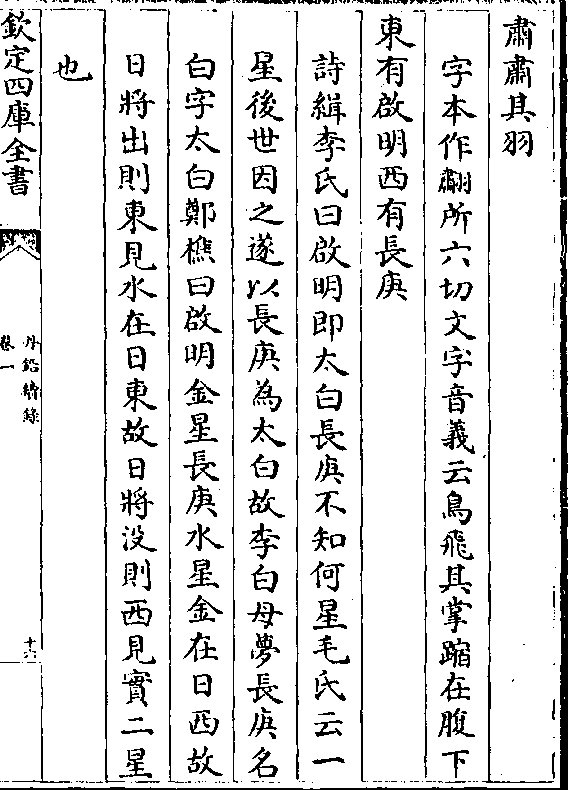 肅肅其羽
字本作䎘所六切文字音義云鳥飛其掌蹜在腹下
東有啟明西有長庚
詩緝李氏曰啟明即太白長庚不知何星毛氏云一
星後世因之遂以長庚為太白故李白母夢長庚名
白字太白鄭樵曰啟明金星長庚水星金在日西故
日將出則東見水在日東故日將沒則西見實二星
也
欽定四庫全書
丹鉛續錄
卷一
十六